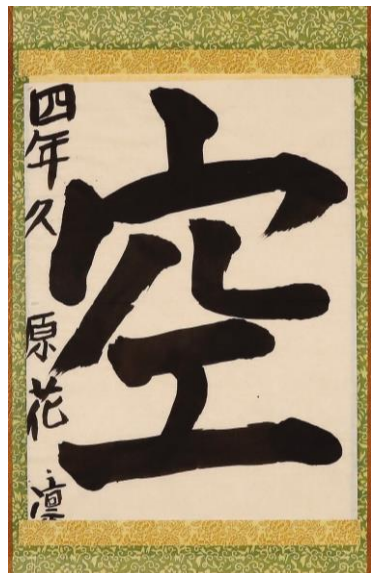 空
四年久原花凛